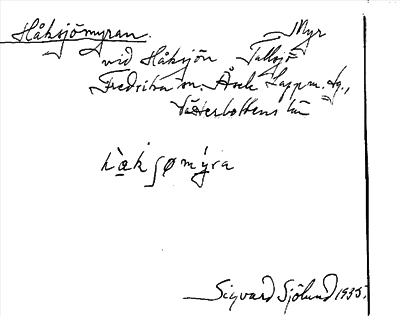 Håksjömyran. Myr
vid Håksjön Tallsjö
Fredrika sn. Åsele Lappm. tg.,
Västerbottens län
hà̱kʃømýra
Sigvard Sjölund 1935.